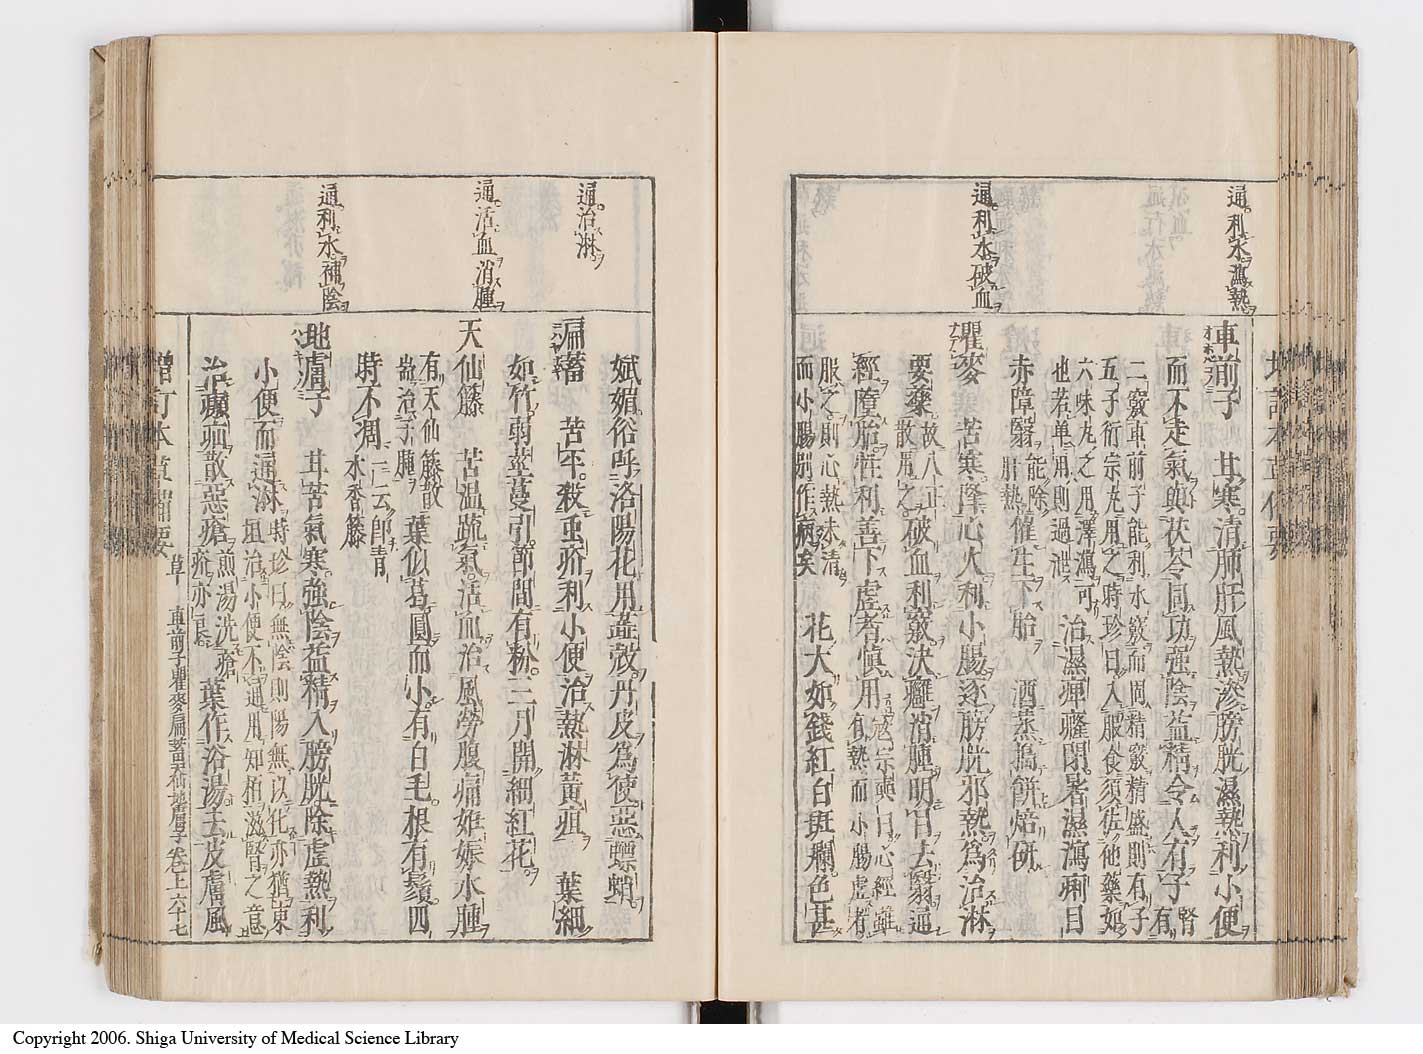 通利水瀉熱
車前子 甘寒清肺肝風熱滲膀胱濕熱利小便
而不走氣與茯苓同功强陰益精令人有子腎有
二竅車前子能利水竅而固精竅精盛則有子
五子衍宗丸用之時珍曰入服食須佐他藥如
六味丸之用澤瀉可
也若單用則過泄
治濕痺癃閉暑濕瀉痢目
赤障翳能除肝熱催生下胎 酒蒸搗餅焙研
通利水破血
瞿麥 苦寒降心火利小腸逐膀胱邪熱爲治淋
要藥故八正散用之破血利竅決癰消腫明目去翳通
經墮胎性利善下虛者慎用寇宗奭曰心經雖有熱而小腸虛者
服之則心熱未清
而小腸別作病矣
花大如錢紅白斑爛色甚
嫵媚俗呼洛陽花用蕋殼丹皮爲使惡螵蛸
通治淋
萹蓄 苦平殺虫疥利小便治熱淋黃疸 葉細
如竹弱莖蔓引節間有粉三月開細紅花
通活血消腫
天仙籐 苦温疏氣活血治風勞腹痛妊娠水腫
有天仙籐散
耑治子腫
葉似葛圓而小有白毛根有鬚四
時不凋一云卽青木香籐
通利水補陰
地膚子 甘苦氣寒强陰益精入膀胱除虛熱利
小便而通淋時珍曰無陰則陽無以化亦猶東
垣治小便不通用知栢滋腎之意
治㿗疝散惡瘡煎湯洗瘡疥亦良葉作浴湯去皮膚風
增訂本草備要 草 車前子瞿麥萹蓄天仙籐地膚子 卷上 六十七